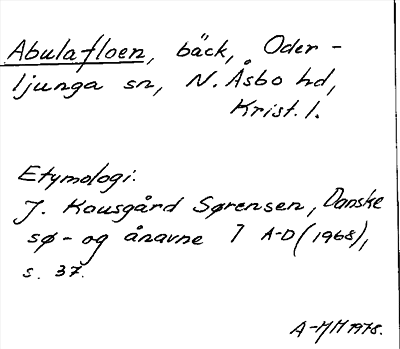 Abulafloen, bäck, Oder-
ljunga sn, N. Åsbo hd,
Krist. l.
Etymologi:
J. Kousgård Sørensen, Danske
sø- og ånavne I A-D (1968),
s. 37.
A-MM 1978.